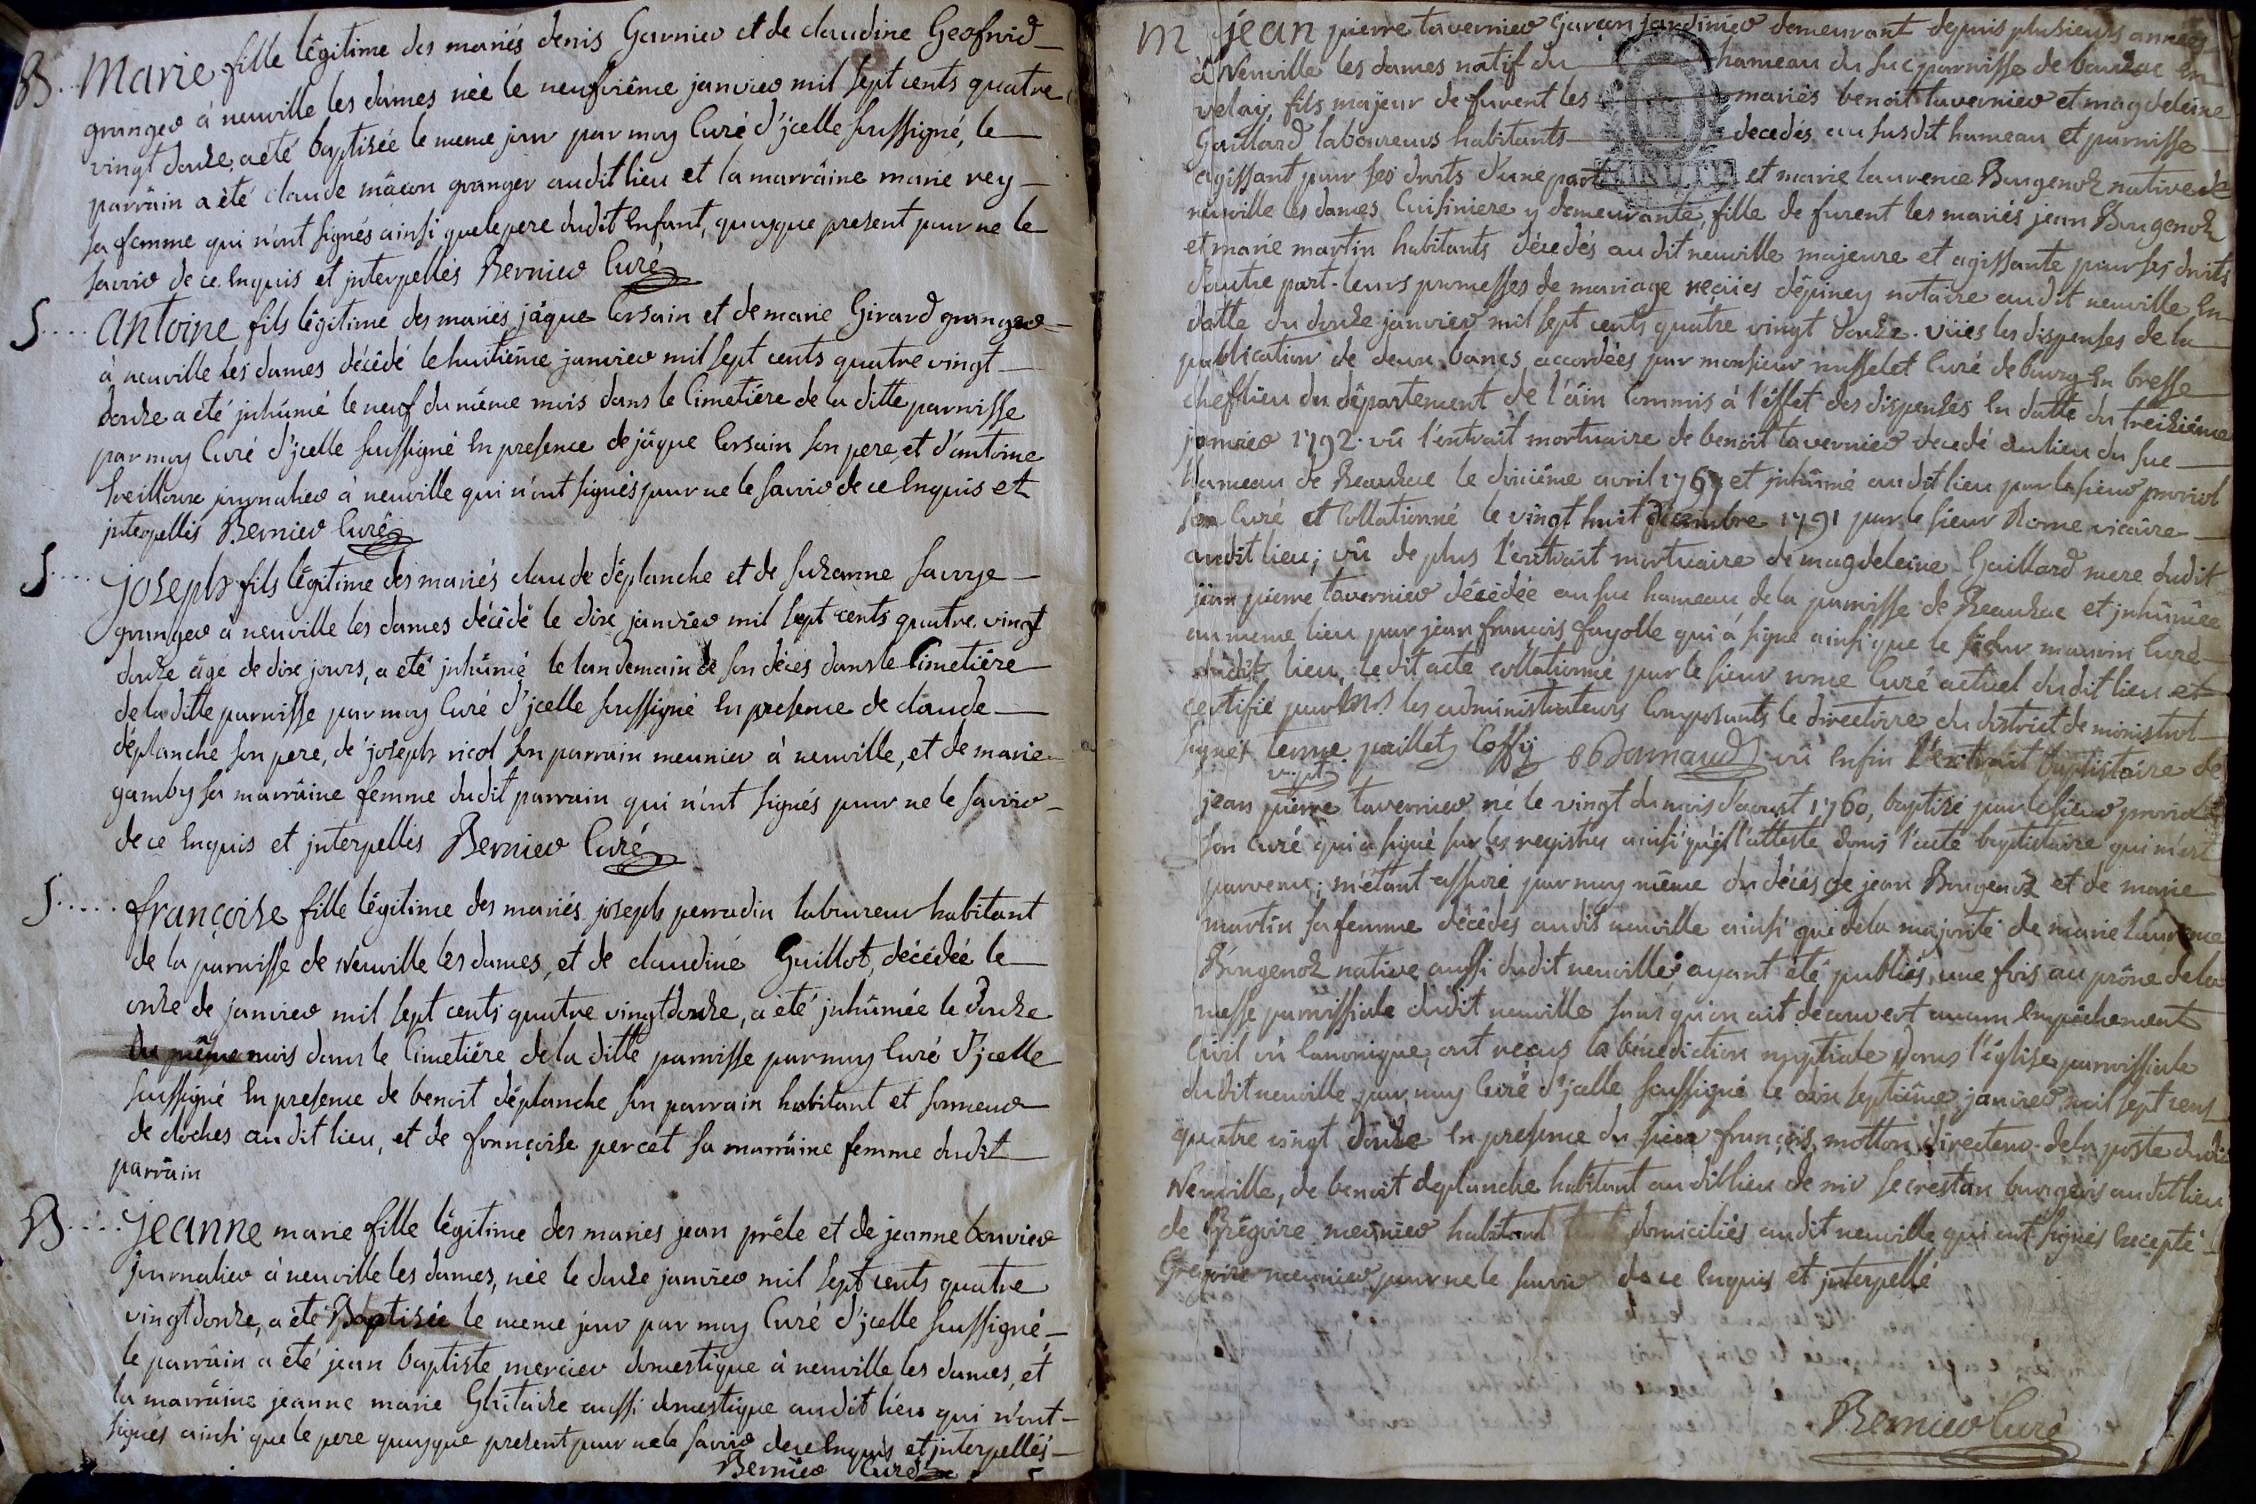 B.. Marie fille légitime des mariés denis Garnier et de claudine Geofrid
granger à neuville les dames née le neufviême janvier mil sept cents quatre
vingt douze, a été baptisée le meme jour par moy Curé d'jcelle soussigné, le
parrain a êté claude mâcon granger audit lieu et la marrâine marie rey
sa femme qui n'ont signés ainsi que le pere dudit Enfant, quoyque present pour ne le
savoir de ce Enquis et jnterpellés Bernier Curé
S.... Antoine fils légitime des mariés jâque Corsain et de marie Girard granger
à neuville les dames décédé le huitiême janvier mil sept cents quatre vingt
douze a été jnhûmé le neuf du même mois dans le Cimetiére de la ditte parroisse
par moy Curé d'jcelle soussigné En presence de jâque Corsain son pere, et d'antoine
journalier à neuville qui n'ont signés pour ne le savoir de ce Enquis et
jnterpellés Bernier Curé
S.... joseph fils légitime des mariés claude déplanche et de suzanne savoye
granger à neuville les dames décédé le dix janvier mil sept cents quatre vingt
douze âgé de dix jours, a eté jnhûmé le landemain de son décés dans le Cimetiére
de la ditte parroisse par moy Curé d'jcelle soussigné En presence de claude
déplanche son pere, de joseph nicol son parrain meunier à neuville, et de marie
gamby sa marrâine femme dudit parrain qui n'ont signés pour ne le savoir
de ce Enquis et jnterpellés Bernier Curé
S..... françoise fille légitime des mariés joseph perradin laboureur habitant
de la parroisse de Neuville les dames, et de claudine Guillot, décédée le
onze de janvier mil sept cents quatre vingt douze, a été jnhûmée le douze
du même mois dans le Cimetiére de la ditte parroisse par moy Curé d'jcelle
soussigné En presence de benoit déplanche son parrain habitant et sonneur
de cloches audit lieu, et de françoise percet sa marrâine femme dudit
parrâin
B.... jeanne marie fille légitime des mariés jean prêle et de jeanne bouvier
journalier à neuville les dames, née le douze janvier mil sept cents quatre
vingt douze, a été Baptisée le meme jour par moy Curé d'jcelle soussigné,
le parrâin a été jean baptiste mercier domestique à neuville les dames, et
la marrâine jeanne marie aussi domestique audit lieu qui n'ont
signés ainsi que le pere quoyque present pour ne le savoir de ce Enquis et jnterpellés
Bernier Curé
M jean pierre tavernier garçon jardinier demeurant depuis plusieurs années
à Neuville les dames natif du hameau du suc parroisse de bauzac En
velay, fils majeur de furent les mariés benoit tavernier et magdeleine
Gaillard laboureurs habitants decedés au susdit hameau et parroisse
agissant pour ses droits d'une part et marie laurence Bugenoz native de
neuville les dames Cuisiniere y demeurante, fille de furent les mariés jean Bugenoz
et marie martin habitants décedés audit neuville majeure et agissante pour ses droits
d'autre part. leurs promesses de mariage reçües dépiney notaire audit neuville En
datte du douze janvier mil sept cents quatre vingt douze. vües les dispenses de la
publication de deux bancs accordées par monsieur russelet Curé de bourg En bresse
cheflieu du département de l'âin Commis à l'éffet des dispenses En datte du treiziême
janvier 1792. vû l'extrait mortuaire de benoit tavernier decedé au lieu du suc
hameau de Beauzac le dixiême avril 1767 et jnhûmé audit lieu par le sieur
son Curé et Collationné le vingt huit decembre 1791 par le sieur Rome vicaire
audit lieu; vû de plus l'extrait mortuaire de magdeleine Gaillard mere dudit
jean pierre tavernier décédée au suc hameau de la parroisse de Beauzac et jnhûmée
au meme lieu par jean françois fayolle qui à signé ainsi que le sieur Curé
dudit lieu, le dit acte collationné par le sieur rome Curé actuel dudit lieu et
certifié par MM. les administrateurs Composants le directoire du district de monistrol
signés terme paillet Coffy Bonnaud vû Enfin l'extrait baptistaire de
jean pierre tavernier né le vingt du mois d'aoust 1760, baptisé par le sieur
son Curé qui a signé sur les registres ainsi qu'il l'atteste dans l'acte baptistaire qui m'est
parvenu; m'étant assuré par moy même du décés de jean Bugenoz et de marie
martin sa femme décédés audit neuville ainsi que de la majorité de marie laurence
Bugenoz native aussi dudit neuville; ayant été publiés une fois au prône de la
messe parroissiale dudit neuville sans qu'on ait découvert aucun Empêchement
Civil ou Canonique, ont reçus la bénediction nuptiale dans l'église parroissiale
dudit neuville par moy Curé d'jcelle soussigné le dix septiême janvier mil sept cent
quatre vingt douze En presence du sieur françois motton directeur de la poste dudit
Neuville, de benoit deplanche habitant audit lieu de secrestan burgeois audit lieu
de Grégoire meunier habitant domiciliés audit neuville qui ont signés Excepté
Gregoire meunier pour ne le savoir de ce Enquis et jnterpellé
Bernier Curé